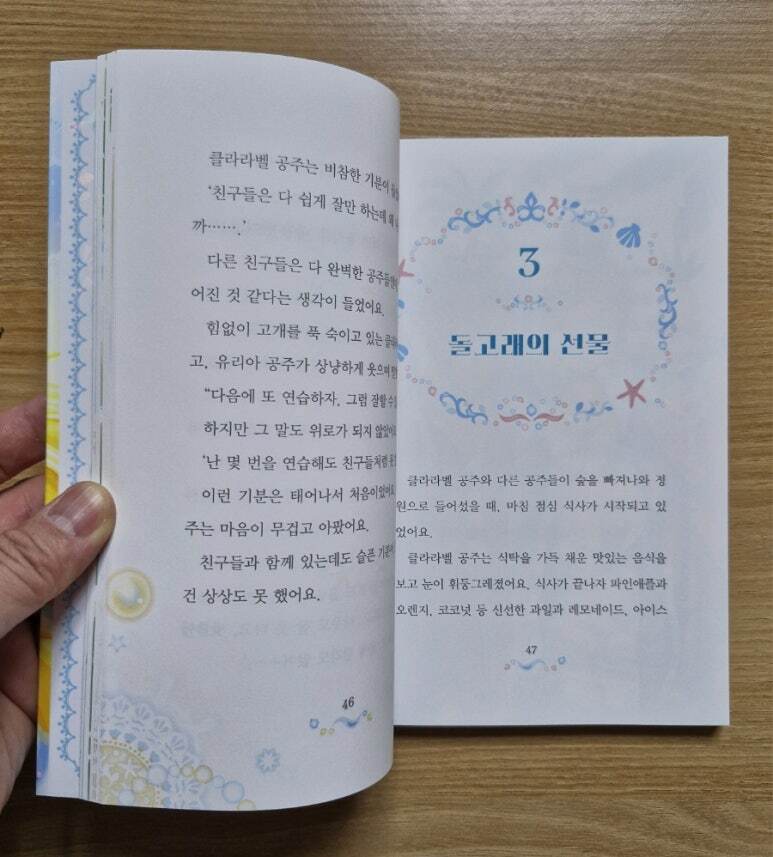 클라라벨 공주는 비참한 기분이
'친구들은 다 쉽게 잘만 하는데 왜
까…….'
다른 친구들은 다 완벽한
어진 것 같다는 생각이 들었어요.
힘없이 고개를 푹 숙이고 있는
고, 유리아 공주가 상냥하게 웃으며
"다음에 또 연습하자. 그럼 잘할 수
하지만 그 말도 위로가 되지
'난 몇 번을 연습해도 친구들처럼
이런 기분은 태어나서 처음이었어요.
주는 마음이 무겁고 아팠어요.
친구들과 함께 있는데도 슬픈
건 상상도 못 했어요.
46
3
돌고래의 선물
클라라벨 공주와 다른 공주들이 숲을 빠져나와 정
원으로 들어섰을 때, 마침 점심 식사가 시작되고 있
었어요.
클라라벨 공주는 식탁을 가득 채운 맛있는 음식을
보고 눈이 휘둥그레졌어요. 식사가 끝나자 파인애플과
오렌지, 코코넛 등 신선한 과일과 레모네이드, 아이스
47